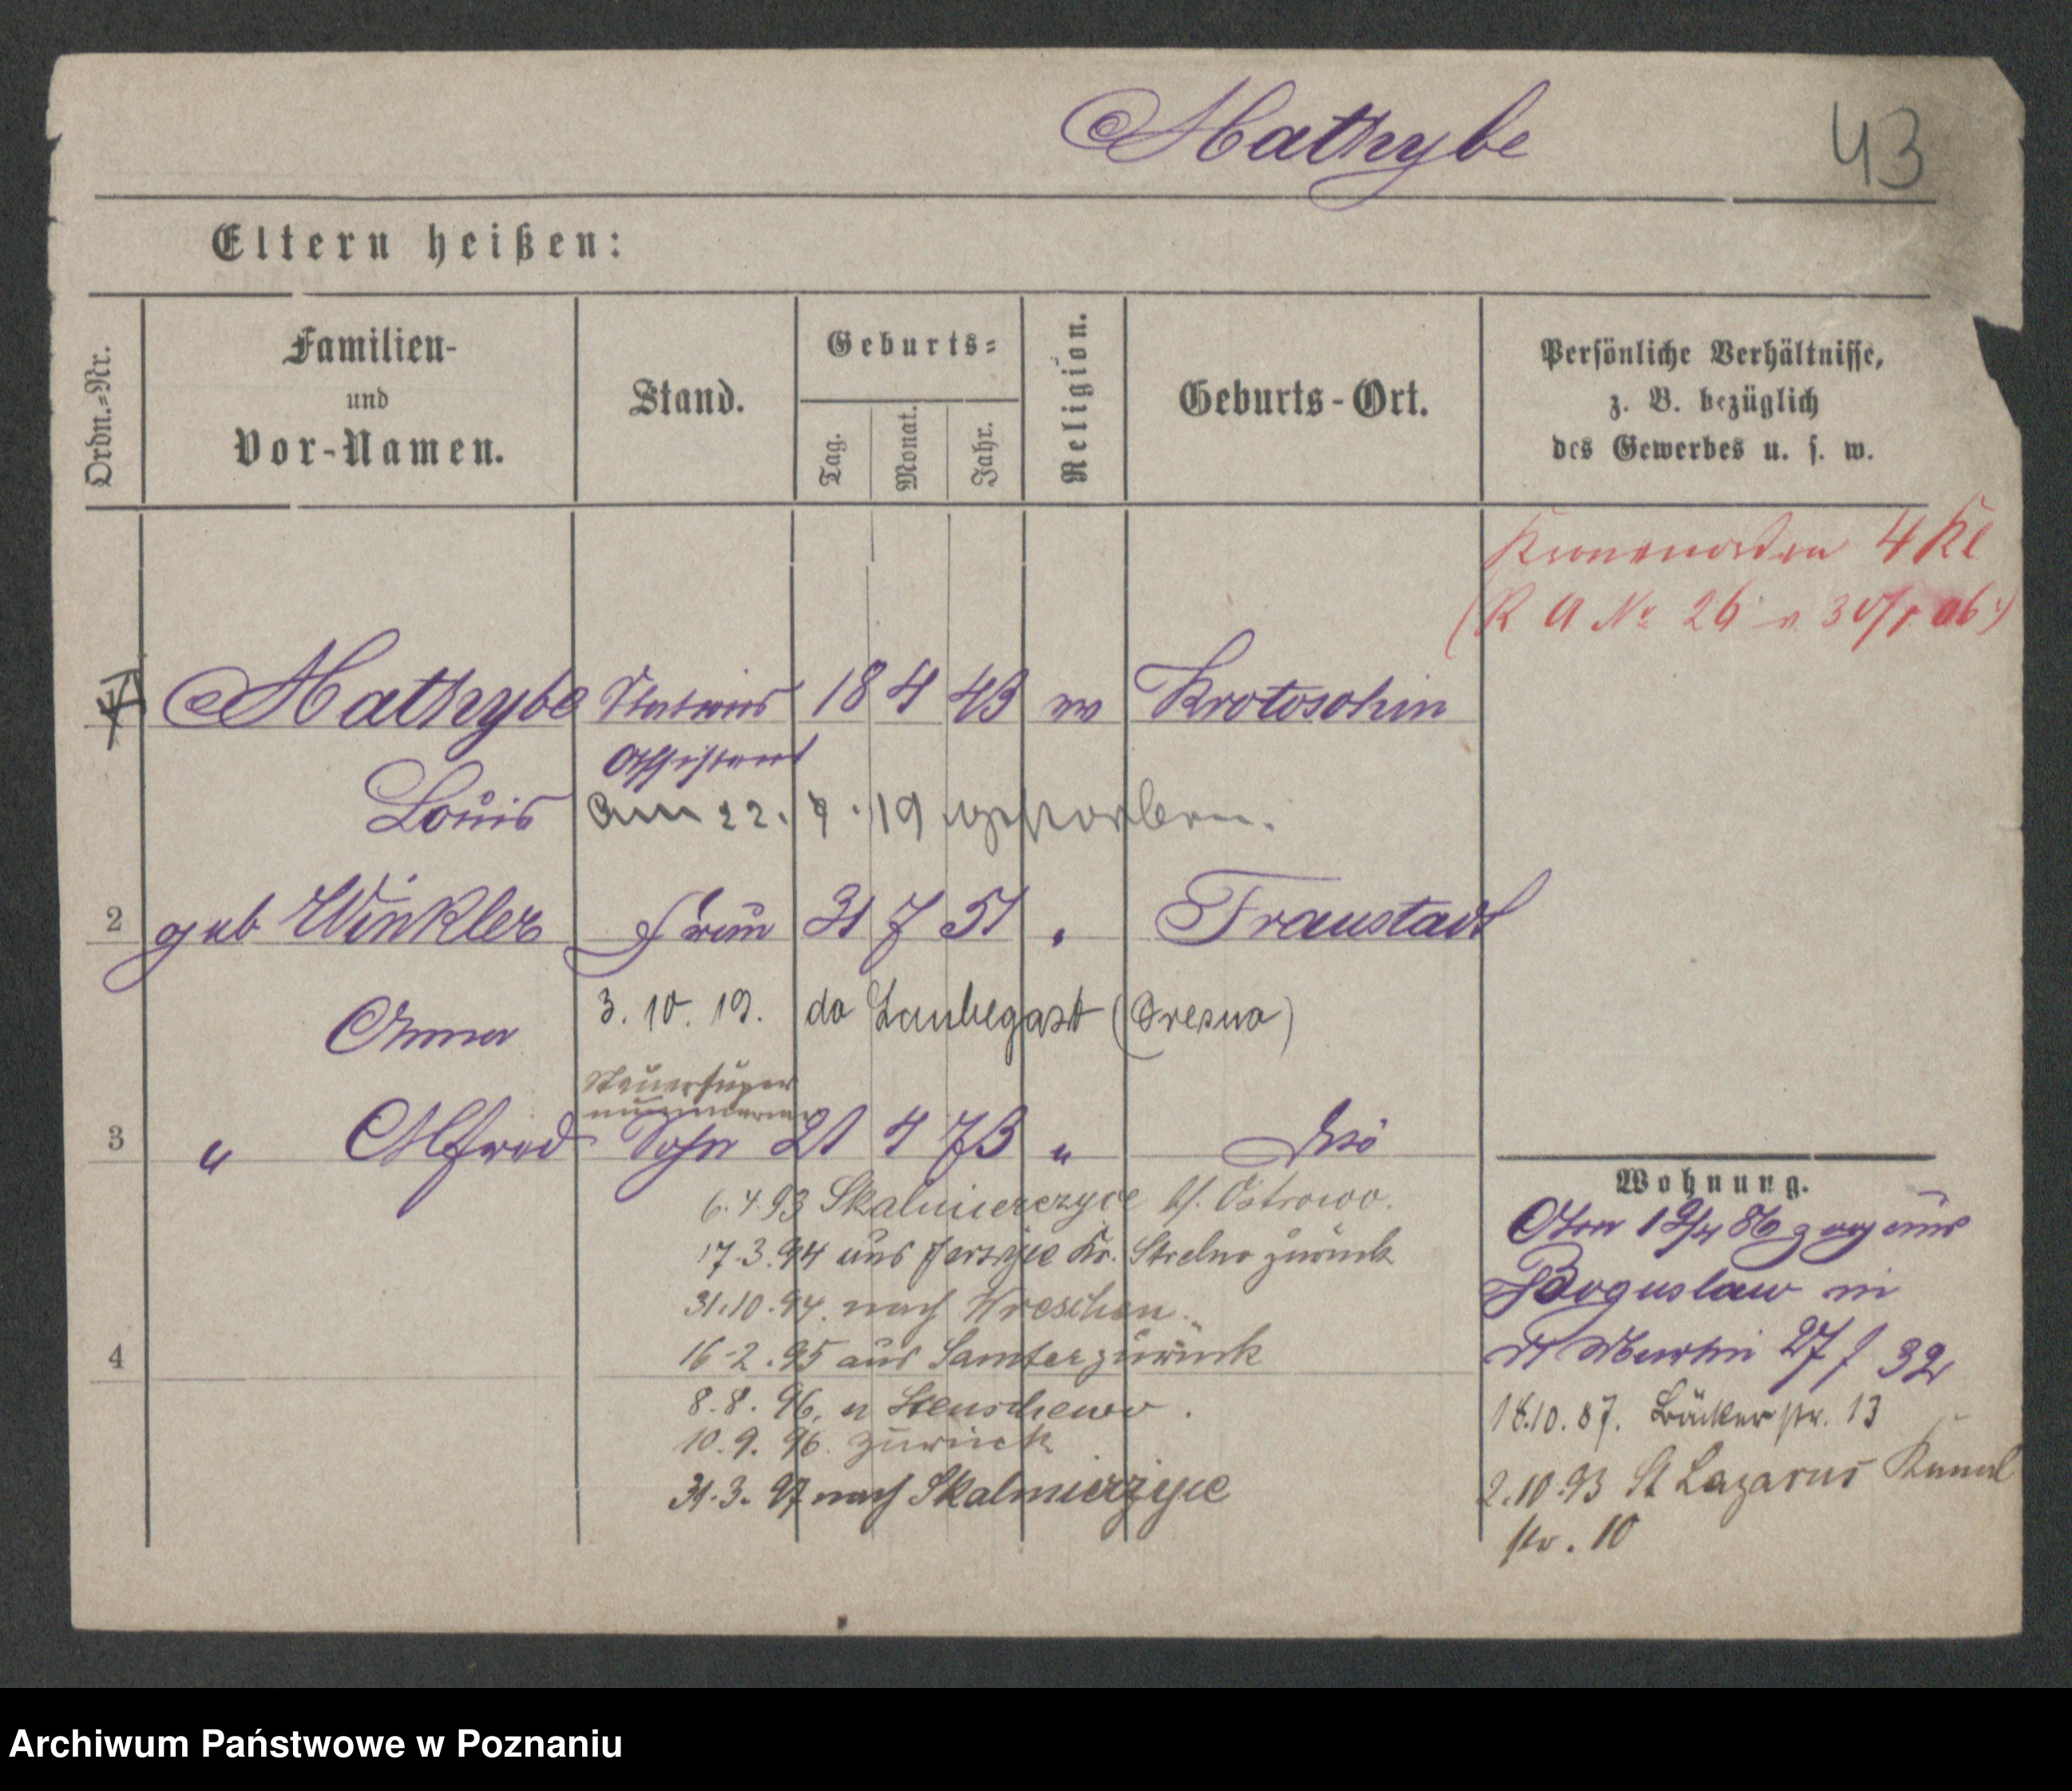 Mathybe
43
Eltern heißen:
Ordn.-Nr.
Familien-
und
Vor-Namen.
Stand.
Geburts-
Tag.
Monat.
Jahr.
Religion.
Geburts-Ort.
Persönliche Verhältnisse,
z. B. bezüglich
des Gewerbes u. s. w.
Kronenorden 4 Kl
(R A No 26
Mathybe 18 4 43 Krotoschin
Assistent
Louis am 22. 19 gestorben.
2 geb Winkler Frau 31 7 51 " Fraustadt
Anna 3. 10. 19. do Laubegast (Dresna)
Steuersuper
numerar
3 " Alfred Sohn 21 4 73 "
6.4.93 Skalmierzyce b/. Ostrowo.
17.3.94 aus Jerzyce Kr. Strelno zurück
31.10.94. nach Wreschen.
4
16-2.95 aus Samter zurück
8.8.96. n Stenschewo.
10.9.96. zurück
31.3.97 nach Skalmierzyce
Wohnung.
86 zog aus
Boguslaw in
St Martin 27 / 32
18.10.87. Bäckerstr. 13
2.10.93 St Lazarus Kanal
str. 10
Archiwum Państwowe w Poznaniu